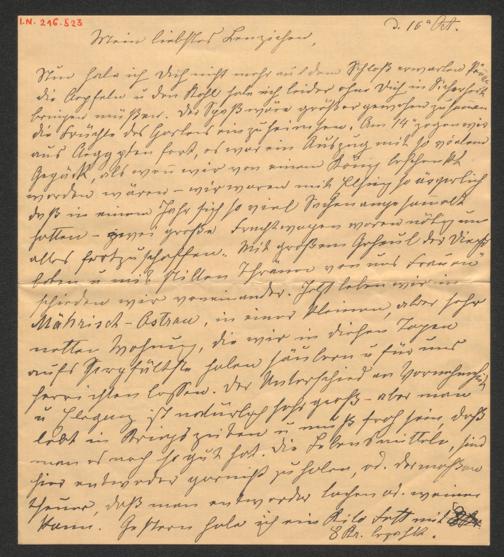 I.N. 216.823
d. 16ⁿ Oct.
Mein liebstes Lenzichen,
Nun habe ich Dich nicht mehr auf dem Schloß erwarten können
die Aepfeln u den Kohl habe ich leider ohne Dich in Sicherheit
bringen müßen. Der Spaß wäre größer gewesen zusammen
die Früchte des Gartens einzuheimsen. Am 14ⁿ zogen wir
aus Aegypten fort, es war ein Auszug mit so vielem
Gepäck, als wenn wir von einem König beschenkt
worden wären – wir waren mit so ärgerlich
daß in einem Jahr sich so viel Sachen angesammelt
hatten – zwei große Frachtwagen waren nötig um
alles fortzuschaffen. Mit großem Geheul der Dienst
boten u mit stillen Thränen von uns Frauen
schieden wir voneinander. Jetzt leben wir in
Mährisch-Ostrau, in einer kleinen, aber sehr
netten Wohnung, die wir in diesen Tagen
aufs Sorgfältigste haben säubern u für uns
herrichten lassen. Der Unterschied an Vornehmheit
u Eleganz ist natürlich sehr groß – aber man
lebt in Kriegszeiten u muß froh sein, daß
man es noch so gut hat. Die Lebensmitteln, sind
hier entweder garnicht zu holen, od. dermaßen
theuer, daß man entweder lachen od. weinen
kann. Gestern habe ich ein Kilo Fett mit
8 Kr. bezahlt.